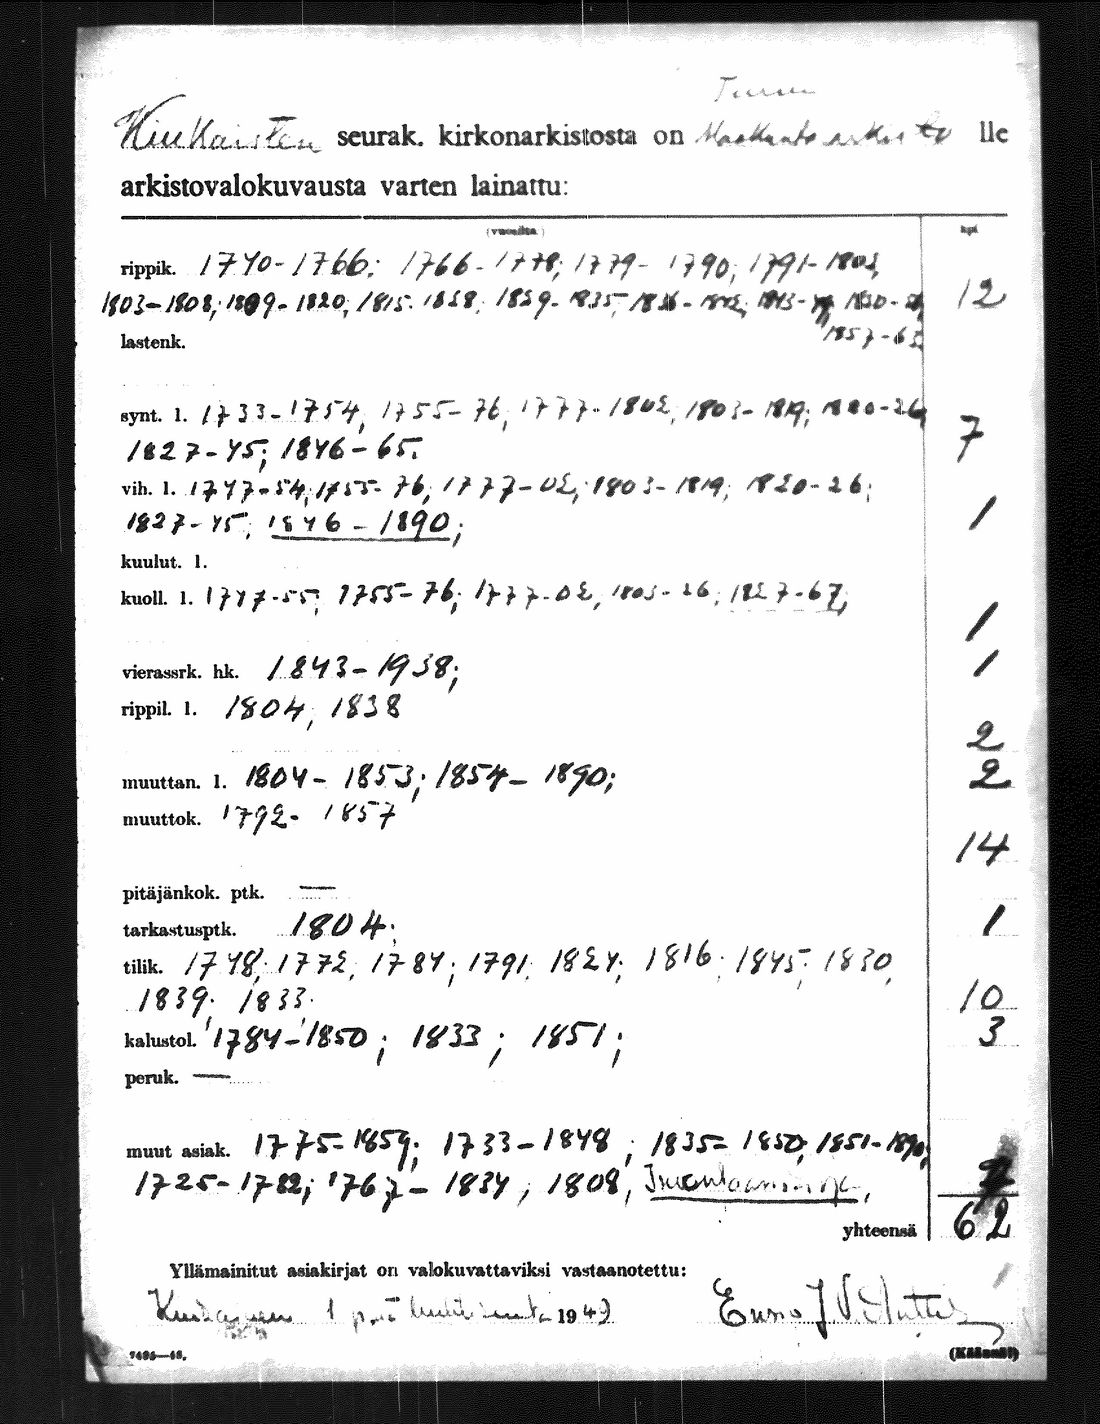 Turun
Kiukaisten seurak. kirkonarkistosta on Maakunta arkisto lle
arkistovalokuvausta varten lainattu:
(vuosilta) kpl
rippik. 1740-1766; 1766-1778; 1779-1790; 1791-1802,
1803-1808; 1809-1820; 1815- 1859- 1835; 1836- 1843- 1850- 12
lastenk. 1857-63
synt. l. 1733-1754, 1755-76, 1777-1802, 1803-1819; 1820-26, 7
1827-45; 1846-65.
vih. l. 1747-54, 1755-76, 1777-02, 1803-1819; 1820-26; 1
1827-45; 1846-1890;
kuulut. l.
kuoll. l. 1747-55; 1755-76; 1777-02, 1803-26; 1827-67; 1
vierassrk. hk. 1843-1938; 1
rippil. l. 1804, 1838 2
muuttan. l. 1804-1853; 1854-1890; 2
muuttok. 1792-1857 14
pitäjänkok. ptk. —
tarkastusptk. 1804; 1
tilik. 1748, 1772, 1784; 1791, 1824; 1816; 1845; 1830,
1839; 1833; 10
kalustol. 1784-1850; 1833; 1851; 3
peruk. —
muut asiak. 1775-1859; 1733-1848; 1835-1850; 1851-1890;
1725-1782; 1767-1834, 1808, 7
yhteensä 62
Yllämainitut asiakirjat on valokuvattaviksi vastaanotettu:
1 p:nä huhtikuuta 1949 Enso J. V.
7495—48. (Käännä!)